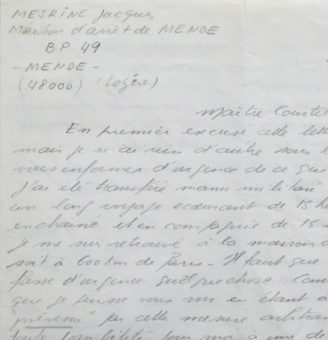 MESRINE Jacques
Maison d'arrêt de MENDE
BP 49
- MENDE -
(48000) (Lozère)
Maître
En premier excuse cette
mais je n'ai rien d'autre sous
vous informer d'urgence de ce que
J'ai été transféré manu militari
un long voyage écœurant de 15 h
enchaîné et en compagnie de 15
je me suis retrouvé à la maison
soit à 600 km de Paris - Il faut que
fasse d'urgence quelque chose.
que je puisse mis en étant
prévenu par cette mesure arbitrai
toute possibilité pour moi